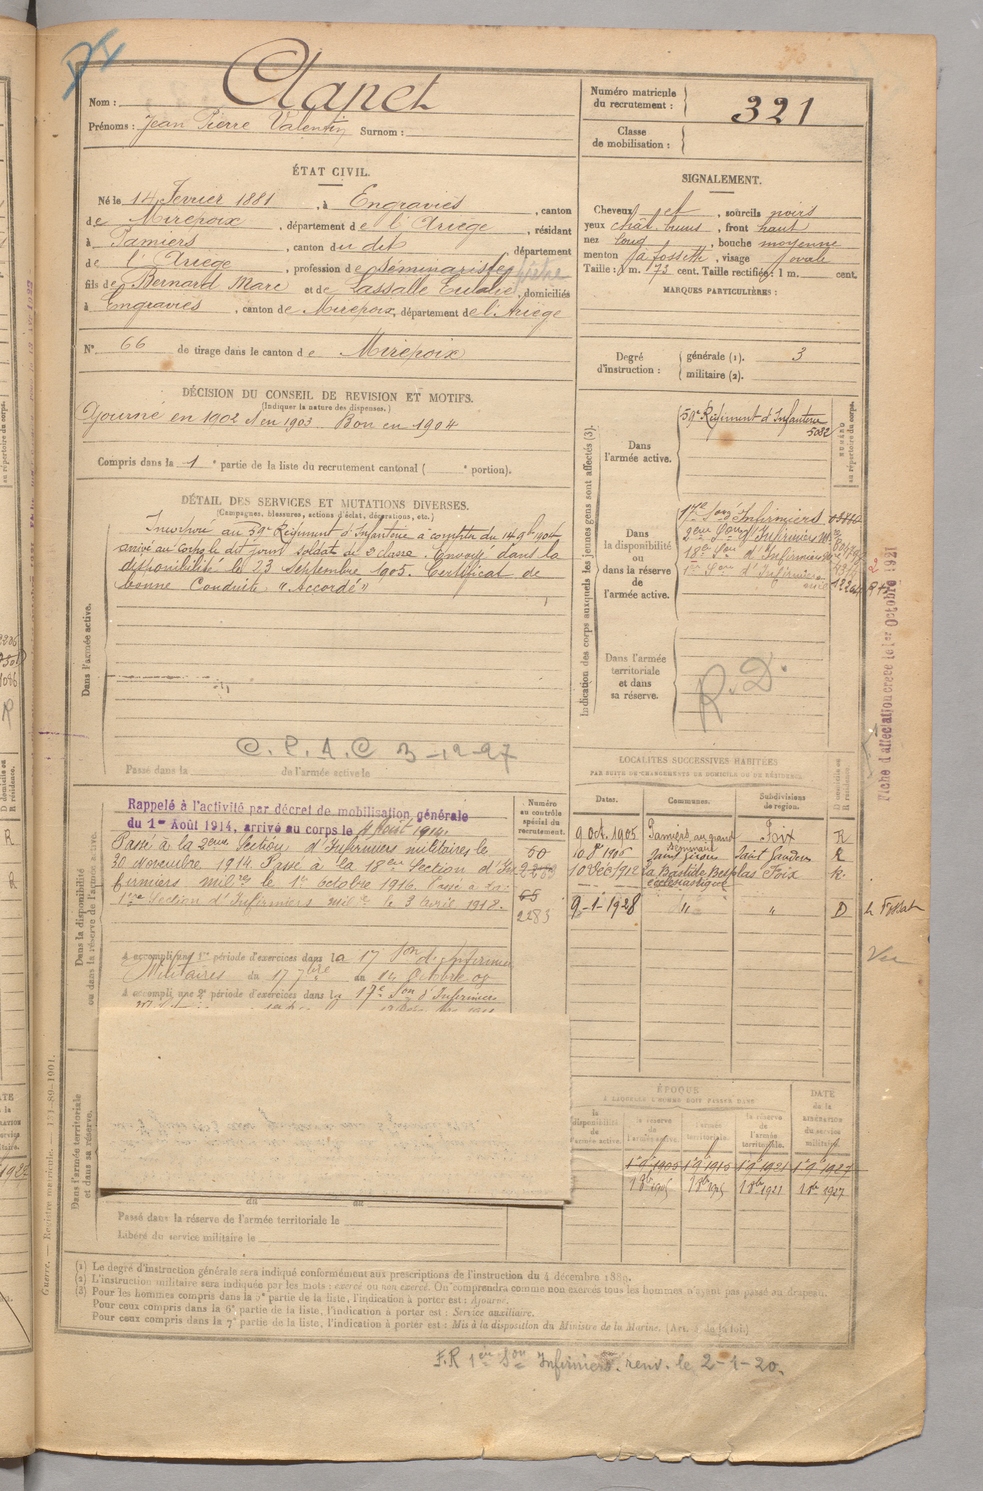 Nom : Clanet
Prénoms : Jean Pierre Valentin Surnom :
Numéro matricule du recrutement : 321
Classe de mobilisation :
ÉTAT CIVIL.
Né le 14 Février 1881, à Engraviès, canton
de Mirepoix, département de l'Ariège, résidant
à Pamiers, canton du dit, département
de l'Ariège, profession de séminariste
fils de Bernard Marc et de Lassalle Eulalie, domiciliés
à Engraviès, canton de Mirepoix, département de l'Ariège
N° 66 de tirage dans le canton de Mirepoix
SIGNALEMENT.
Cheveux et, sourcils noirs
yeux chât. bruns, front haut
nez long, bouche moyenne
menton à fossette, visage ovale
Taille : 1 m. 73 cent. Taille rectifiée : 1 m. cent.
MARQUES PARTICULIÈRES :
Degré d'instruction : générale (1). 3
militaire (2).
DÉCISION DU CONSEIL DE REVISION ET MOTIFS.
(Indiquer la nature des dispenses.)
Ajourné en 1902 & en 1903 Bon en 1904
Compris dans la 1e partie de la liste du recrutement cantonal ( e portion).
DÉTAIL DES SERVICES ET MUTATIONS DIVERSES.
(Campagnes, blessures, actions d'éclat, décorations, etc.)
Dans l'armée active.
Incorporé au 59e Régiment d'Infanterie à compter du 14 9bre 1904
arrivé au corps le dit jour soldat de 2e classe. Envoyé dans la
disponibilité le 23 Septembre 1905. Certificat de
bonne Conduite "Accordé"
C. P. A. C 3-12-27
Passé dans la de l'armée active le
Indication des corps auxquels les jeunes gens sont affectés (3).
Dans l'armée active.
59e Régiment d'Infanterie
5082
NUMÉRO au répertoire du corps.
Dans la disponibilité ou dans la réserve de l'armée active.
17e Son Infirmiers
18e Son d'Infirmiers
1re Son d'Infirmiers
Dans l'armée territoriale et dans sa réserve.
R. D.
Fiche d'affectation créée le 1er Octobre 1921
LOCALITÉS SUCCESSIVES HABITÉES
PAR SUITE DE CHANGEMENTS DE DOMICILE OU DE RÉSIDENCE.
Dates. Communes. Subdivisions de région. D domicile ou R résidence.
9 oct. 1905 Pamiers au grand Séminaire Foix R
Saint Girons Saint Gaudens R
10 Déc 1912 La Bastide-Besplas Foix R.
ecclésiastique
9-1-1928 " " D
Vu
Dans la disponibilité ou dans la réserve de l'armée active.
Numéro au contrôle spécial du recrutement.
Rappelé à l'activité par décret de mobilisation générale
du 1er Août 1914, arrivé au corps le 4 Août 1914.
Passé à la 2eme Section d'Infirmiers militaires le
30 novembre 1914 Passé à la 18eme Section d'In-
firmiers milres le 1er octobre 1916. Passé à la
1ère Section d'Infirmiers milre le 3 avril 1918.
50
55
2283
A accompli une 1re période d'exercices dans la 17 Son d'Infirmiers
Militaires du 17 7bre au 14 Octobre 07
A accompli une 2e période d'exercices dans la 17e Son d'Infirmiers
Dans l'armée territoriale et dans sa réserve.
ÉPOQUE
À LAQUELLE L'HOMME DOIT PASSER DANS
la disponibilité de l'armée active.
la réserve de l'armée active.
l'armée territoriale.
la réserve de l'armée territoriale.
DATE de la libération du service militaire.
1 9 1905 1 9 1915 1 9 1921 1 9 1927
1 8bre 1905 1 8bre 1915 1 8bre 1921 1 8bre 1927
du au
Passé dans la réserve de l'armée territoriale le
Libéré du service militaire le
(1) Le degré d'instruction générale sera indiqué conformément aux prescriptions de l'instruction du 4 décembre 1889.
(2) L'instruction militaire sera indiquée par les mots : exercé ou non exercé. On comprendra comme non exercés tous les hommes n'ayant pas passé au drapeau.
(3) Pour les hommes compris dans la 5e partie de la liste, l'indication à porter est : Ajourné.
Pour ceux compris dans la 6e partie de la liste, l'indication à porter est : Service auxiliaire.
Pour ceux compris dans la 7e partie de la liste, l'indication à porter est : Mis à la disposition du Ministre de la Marine.
Guerre. — Registre matricule. — 171-89-1901.
F.R 1ere Son Infirmiers. renv. le 2-1-20.